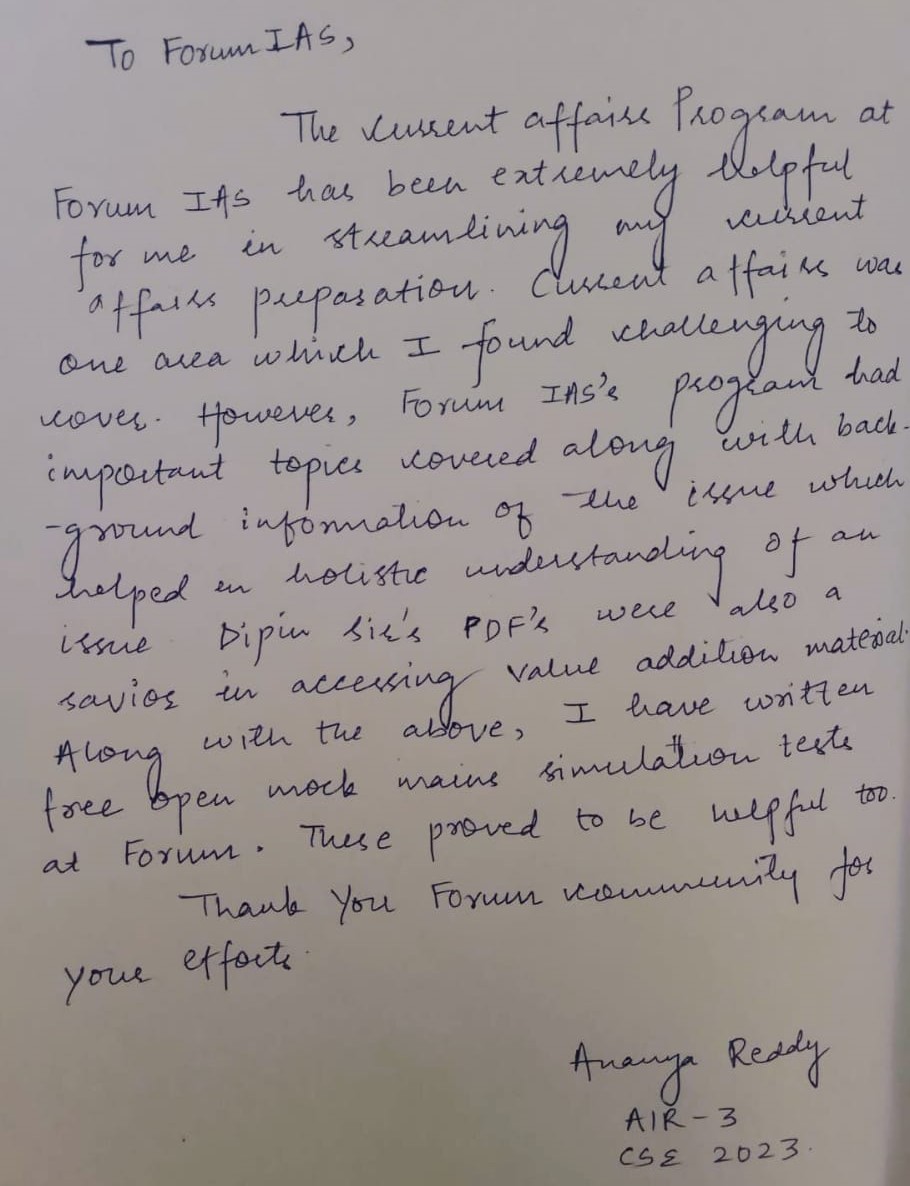 To Forum IAS,
The current affairs Program at
Forum IAS has been extremely helpful
for me in streamlining my current
affairs preparation. Current affairs was
one area which I found challenging to
cover. However, Forum IAS's program had
important topics covered along with back-
-ground information of the issue which
helped in holistic understanding of an
issue Dipin Sir's PDF's were also a
savior in accessing value addition material.
Along with the above, I have written
free open mock mains simulation tests
at Forum. These proved to be helpful too.
Thank You Forum community for
your efforts.
Ananya Reddy
AIR-3
CSE 2023.